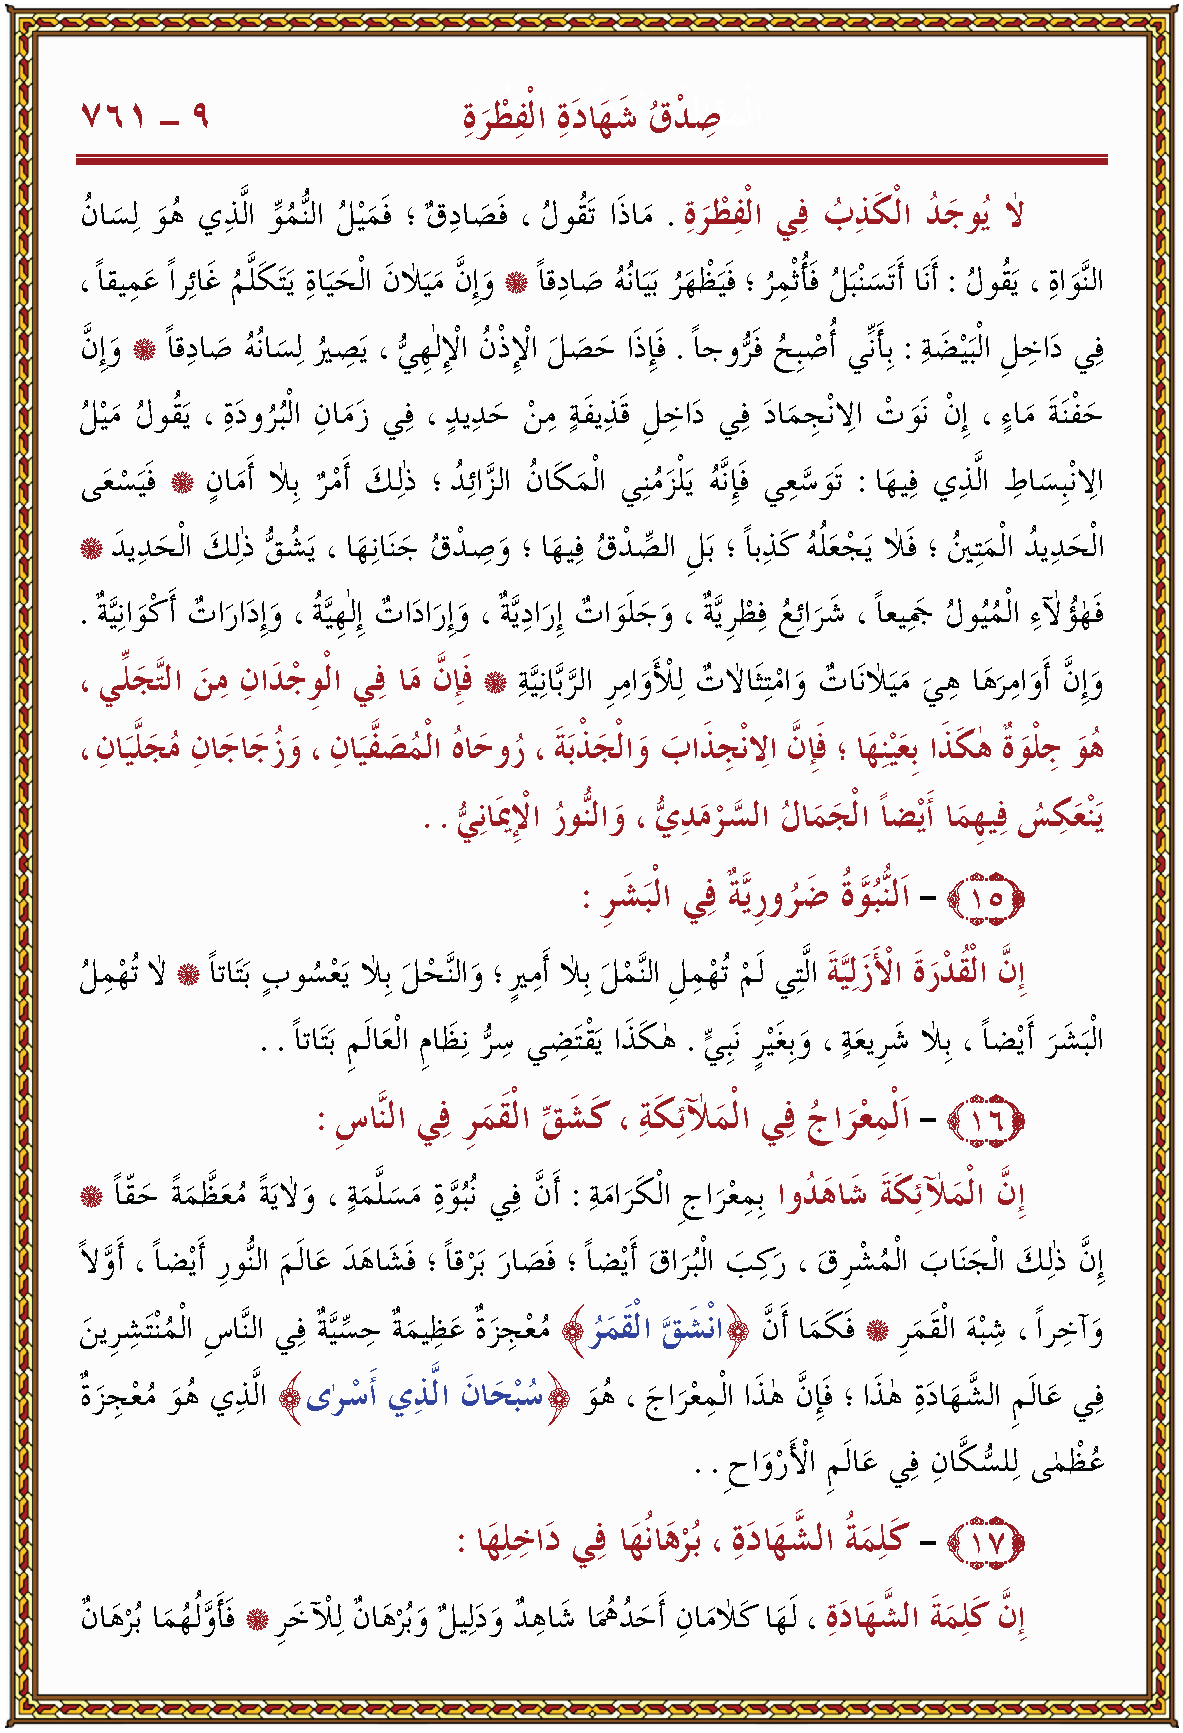 صِدْقُ شَهَادَةِ الْفِطْرَةِ ٩ – ٧٦١
لاٰ يُوجَدُ الْكَذِبُ فِي الْفِطْرَةِ . مَاذَا تَقُولُ ، فَصَادِقٌ ؛ فَمَيْلُ النُّمُوِّ الَّذِي هُوَ لِسَانُ
النَّوَاةِ ، يَقُولُ : أَنَا أَتَسَنْبَلُ فَأُثْمِرُ ؛ فَيَظْهَرُ بَيَانُهُ صَادِقاً ۞ وَإِنَّ مَيَلاٰنَ الْحَيَاةِ يَتَكَلَّمُ غَائِراً عَمِيقاً ،
فِي دَاخِلِ الْبَيْضَةِ : بِأَنِّي أُصْبِحُ فَرُّوجاً . فَإِذَا حَصَلَ الْإِذْنُ الْإِلٰهِيُّ ، يَصِيرُ لِسَانُهُ صَادِقاً ۞ وَإِنَّ
حَفْنَةَ مَاءٍ ، إِنْ نَوَتْ الِانْجِمَادَ فِي دَاخِلِ قَذِيفَةٍ مِنْ حَدِيدٍ ، فِي زَمَانِ الْبُرُودَةِ ، يَقُولُ مَيْلُ
الِانْبِسَاطِ الَّذِي فِيهَا : تَوَسَّعِي فَإِنَّهُ يَلْزَمُنِي الْمَكَانُ الزَّائِدُ ؛ ذٰلِكَ أَمْرٌ بِلاٰ أَمَانٍ ۞ فَيَسْعَى
الْحَدِيدُ الْمَتِينُ ؛ فَلاٰ يَجْعَلُهُ كَذِباً ؛ بَلِ الصِّدْقُ فِيهَا ؛ وَصِدْقُ جَنَانِهَا ، يَشُقُّ ذٰلِكَ الْحَدِيدَ ۞
فَهٰؤُلآٰءِ الْمُيُولُ جَمِيعاً ، شَرَائِعُ فِطْرِيَّةٌ ، وَجَلَوَاتٌ إِرَادِيَّةٌ ، وَإِرَادَاتٌ إِلٰهِيَّةُ ، وَإِدَارَاتٌ أَكْوَانِيَّةٌ .
وَإِنَّ أَوَامِرَهَا هِيَ مَيَلاٰنَاتٌ وَامْتِثَالاٰتٌ لِلْأَوَامِرِ الرَّبَّانِيَّةِ ۞ فَإِنَّ مَا فِي الْوِجْدَانِ مِنَ التَّجَلِّي ،
هُوَ جِلْوَةٌ هٰكَذَا بِعَيْنِهَا ؛ فَإِنَّ الِانْجِذَابَ وَالْجَذْبَةَ ، رُوحَاهُ الْمُصَفَّيَانِ ، وَزُجَاجَانِ مُجَلَّيَانِ ،
يَنْعَكِسُ فِيهِمَا أَيْضاً الْجَمَالُ السَّرْمَدِيُّ ، وَالنُّورُ الْإِيمَانِيُّ . .
﴿١٥﴾ – اَلنُّبُوَّةُ ضَرُورِيَّةٌ فِي الْبَشَرِ :
إِنَّ الْقُدْرَةَ الْأَزَلِيَّةَ الَّتِي لَمْ تُهْمِلِ النَّمْلَ بِلاٰ أَمِيرٍ ؛ وَالنَّحْلَ بِلاٰ يَعْسُوبٍ بَتَاتاً ۞ لاٰ تُهْمِلُ
الْبَشَرَ أَيْضاً ، بِلاٰ شَرِيعَةٍ ، وَبِغَيْرِ نَبِيٍّ . هٰكَذَا يَقْتَضِي سِرُّ نِظَامِ الْعَالَمِ بَتَاتاً . .
﴿١٦﴾ – اَلْمِعْرَاجُ فِي الْمَلآٰئِكَةِ ، كَشَقِّ الْقَمَرِ فِي النَّاسِ :
إِنَّ الْمَلآٰئِكَةَ شَاهَدُوا بِمِعْرَاجِ الْكَرَامَةِ : أَنَّ فِي نُبُوَّةِ مَسَلَّمَةٍ ، وَلاٰيَةً مُعَظَّمَةً حَقّاً ۞
إِنَّ ذٰلِكَ الْجَنَابَ الْمُشْرِقَ ، رَكِبَ الْبُرَاقَ أَيْضاً ؛ فَصَارَ بَرْقاً ؛ فَشَاهَدَ عَالَمَ النُّورِ أَيْضاً ، أَوَّلاً
وَآخِراً ، شِبْهَ الْقَمَرِ ۞ فَكَمَا أَنَّ ﴿انْشَقَّ الْقَمَرُ﴾ مُعْجِزَةٌ عَظِيمَةٌ حِسِّيَّةٌ فِي النَّاسِ الْمُنْتَشِرِينَ
فِي عَالَمِ الشَّهَادَةِ هٰذَا ؛ فَإِنَّ هٰذَا الْمِعْرَاجَ ، هُوَ ﴿سُبْحَانَ الَّذِي أَسْرٰى﴾ الَّذِي هُوَ مُعْجِزَةٌ
عُظْمٰى لِلسُّكَّانِ فِي عَالَمِ الْأَرْوَاحِ . .
﴿١٧﴾ – كَلِمَةُ الشَّهَادَةِ ، بُرْهَانُهَا فِي دَاخِلِهَا :
إِنَّ كَلِمَةَ الشَّهَادَةِ ، لَهَا كَلاٰمَانِ أَحَدُهُمَا شَاهِدٌ وَدَلِيلٌ وَبُرْهَانٌ لِلْآخَرِ ۞ فَأَوَّلُهُمَا بُرْهَانٌ